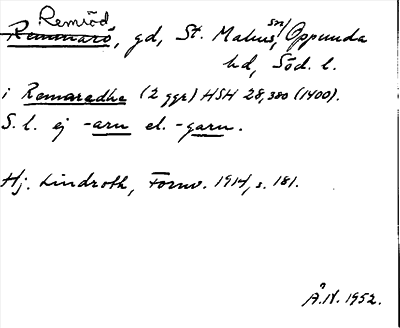 Remiöd
Remmarö, gd, St. Malms sn, Oppunda
hd, Söd. l.
i Remaredhe (2 ggr) HSH 28,380 (1400).
S. l. ej -aru el. -garn.
Hj. Lindroth, Fornv. 1914, s. 181.
Å.N. 1952.